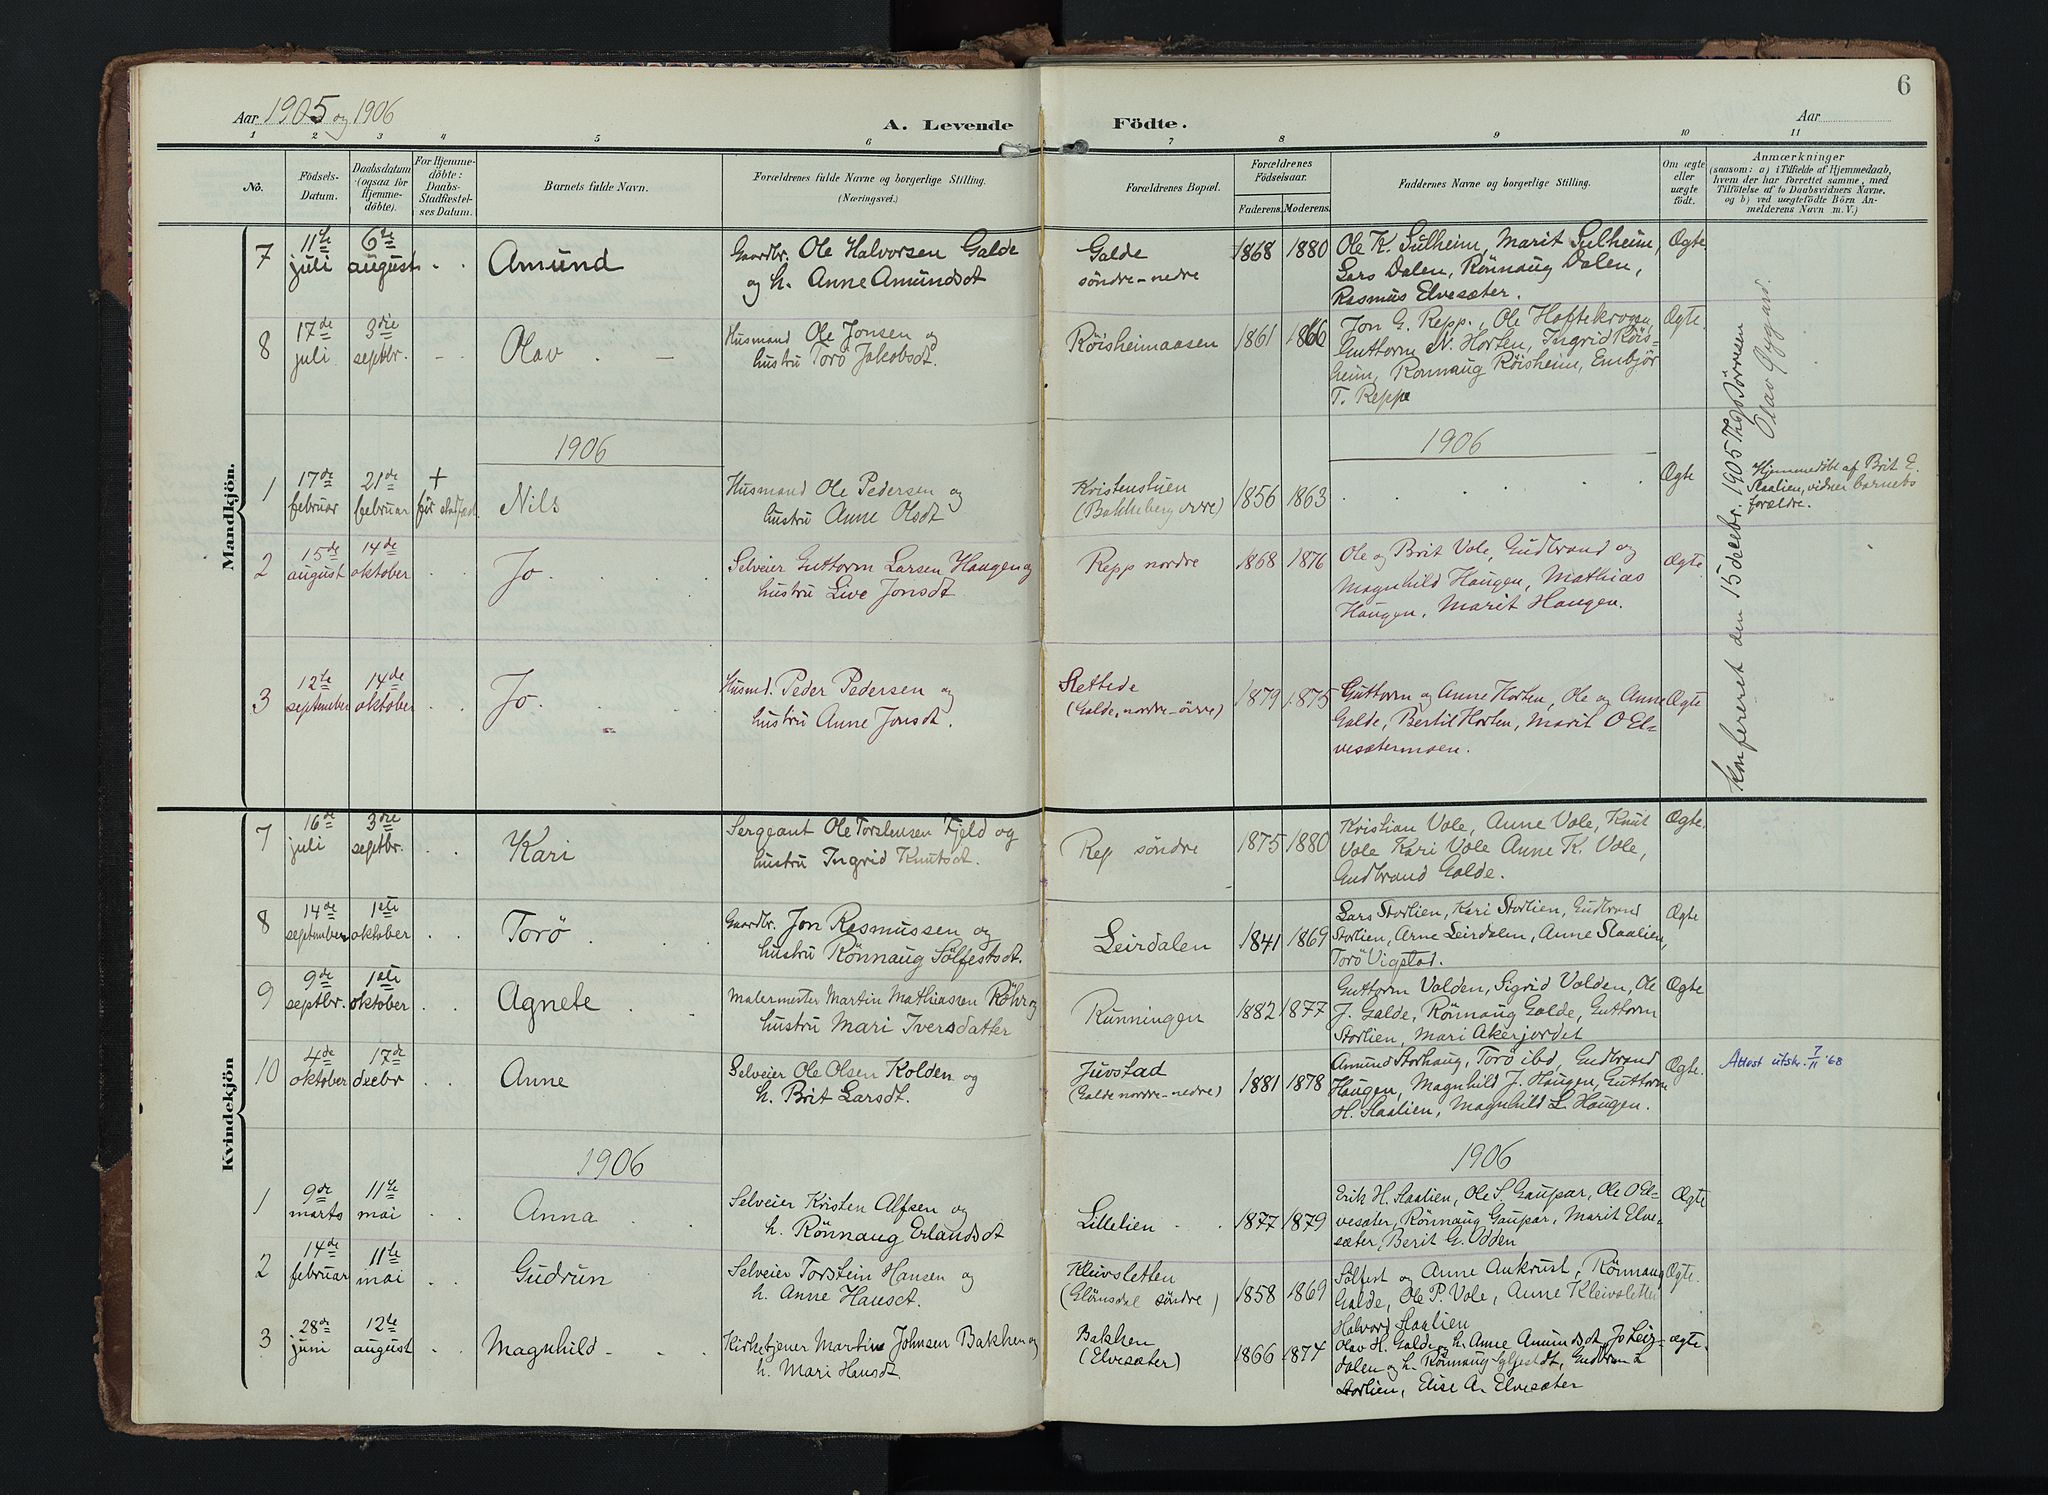 6
Aar 1905 og 1906
A. Levende Födte.
Aar
1 2 3 4 5 6 7 8 9 10 11
No.
Födsels-
Datum.
Daabsdatum
(ogsaa for
Hjemme-
döbte).
For Hjemme-
döbte:
Daabs-
Stadfæstel-
ses Datum.
Barnets fulde Navn.
Forældrenes fulde Navne og borgerlige Stilling.
(Næringsvei.)
Forældrenes Bopæl.
Forældrenes
Födselsaar.
Faderens. Moderens.
Faddernes Navne og borgerlige Stilling.
Om ægte
eller
uægte
födt.
Anmærkninger
(saasom: a) i Tilfælde af Hjemmedaab,
hvem der har forrettet samme, med
Tilföielse af to Daabsvidners Navne,
og b) ved uægtefödte Börn An-
melderens Navn m. V.)
Mandkjön.
7
11te
juli
6te
august
Amund
Gaardbr. Ole Halvorsen Galde
og h. Anne Amundsdt
Galde
søndre-nedre
1868 1880
Ole K. Sulheim, Marit Sulheim,
Lars Dalen, Rönnaug Dalen,
Rasmus Elvesæter.
Ægte
8
17de
juli
3die
septbr.
Olav
Husmand Ole Jonsen og
hustru Torö Jakobsdt.
Röisheimaasen
1861 1866
Jon G. Repp., Ole Haftekrogen,
Guttorm N. Horten, Ingrid Röis-
heim, Ronnaug Röisheim, Embjör
T. Reppe
Ægte.
1906
1906
1
17de
februar
21de
februar
+
för stadfæst
Nils
Husmand Ole Pedersen og
hustru Anne Olsdt
Kristenstuen
(Bakkeberg övre)
1856 1863
Ægte
Hjemmedöbt af Brit E.
Slaalien, vidner barnets
forældre.
2
15de
august
14de
oktober
Jo
Selveier Guttorm Larsen Haugen og
hustru Live Jonsdt.
Repp nordre
1868 1876
Ole og Brit Vole, Gudbrand og
Magnhild Haugen, Mathias
Haugen, Marit Haugen.
Ægte
3
12te
september
14de
oktober
Jo.
Husmd. Peder Pedersen og
hustru Anne Jonsdt.
Slettede
(Galde, nordre-övre)
1879 1875
Guttorm og Anne Horten, Ole og Anne
Galde, Bertil Horten, Marit O El-
vesætermoen.
Ægte
Konfereret den 15 decbr. 1905
Olav Nygard.
Kvindekjön
7
16de
juli
3die
septbr.
Kari
Sergeant Ole Torstensen Fjeld og
hustru Ingrid Knutsdt.
Rep søndre
1875 1880
Kristian Vole, Anne Vole, Knut
Vole Kari Vole Anne K. Vole,
Gudbrand Galde.
Ægte.
8
14de
september
1ste
oktober
Torö
Gaardbr. Jon Rasmussen og
hustru Rönnaug Sölfestsdt.
Leirdalen
1841 1869
Lars Storlien, Kari Storlien, Gudbrand
Storlien, Arne Leirdalen, Anne Slaalien,
Torö Vigstad.
Ægte
9
9de
septbr.
1ste
oktober
Agnete
Malermester Martin Mathiassen Röhr og
hustru Mari Iversdatter
Runningen
1882 1877
Guttorm Volden, Sigrid Volden, Ole
J. Galde, Rönnaug Galde, Guttorm
Storlien, Mari Akerjordet
Ægte
10
4de
oktober
17de
decbr
Anne
Selveier Ole Olsen Kolden og
h. Brit Larsdt.
Juvstad
(Galde nordre-nedre)
1881 1878
Amund Storhaug, Torö ibd, Gudbrand
Haugen, Magnhild J. Haugen, Guttorm
H. Slaalien, Magnhild L. Haugen.
Ægte.
Attest utsk. 7/11 '68
1906
1906
1
9de
marts
11te
mai
Anna
Selveier Kristen Alfsen og
h. Rönnaug Erlandsdt
Lillelien
1877 1879
Erik H. Slaalien, Ole S. Gaupar, Ole O El-
vesæter, Rönnaug Gaupar, Marit Elve-
sæter, Berit G. Odden
Ægte
2
14de
februar
11te
mai
Gudrun
Selveier Torstein Hansen og
h. Anne Hansdt.
Kleivsletten
(Glömsdal söndre)
1858 1869
Sölfest og Anne Aukrust, Rönnaug
Galde, Ole P. Vole, Anne Kleivsletten
Halvord Slaalien
Ægte.
3
28de
juni
12te
august
Magnhild
Kirketjener Martin Johnsen Bakken og
h. Mari Hansdt.
Bakken
(Elvesæter)
1866 1874
Olav H. Galde og h. Anne Amundsdt, Jo Leir-
dalen og h. Rönnaug Sølfestdt, Gudbran L
Storlien, Elise A. Elvesæter
Ægte.